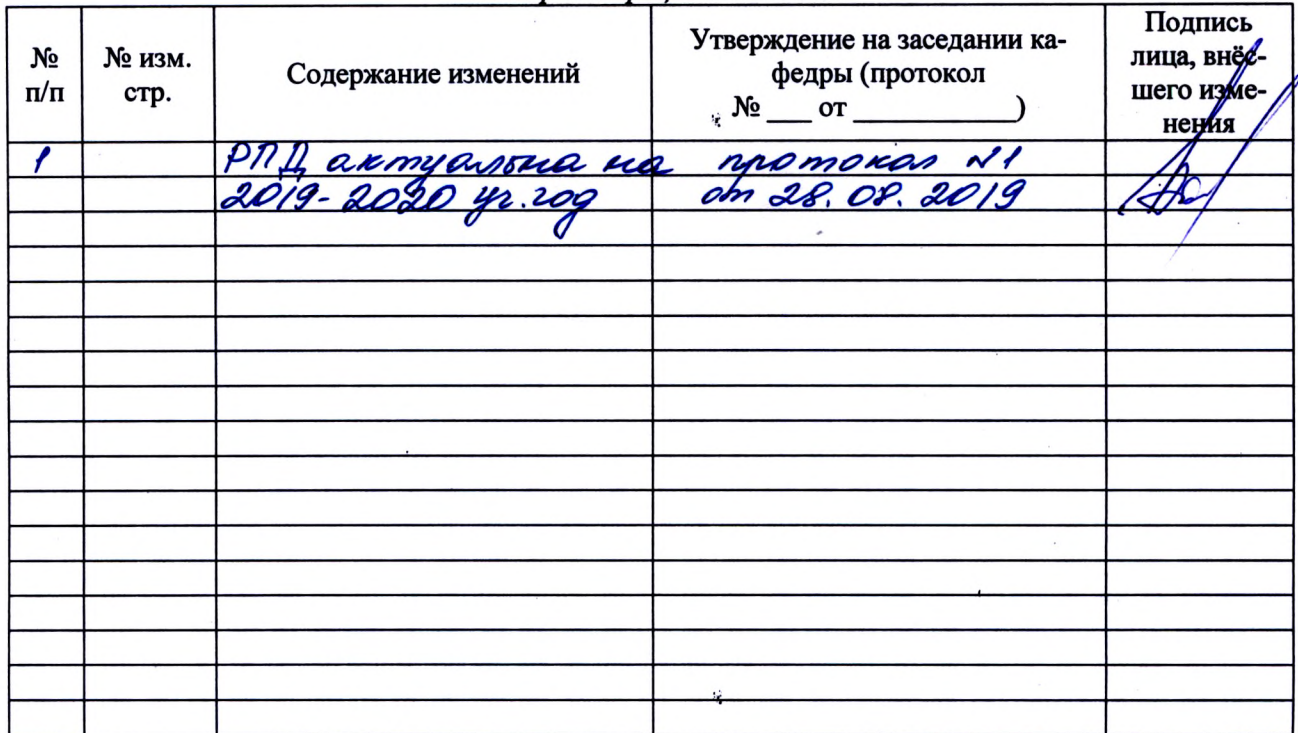 №
п/п
№ изм.
стр.
Содержание изменений
Утверждение на заседании ка-
федры (протокол
№ ___ от ___________)
Подпись
лица, внёс-
шего изме-
нения
1
РПД актуальна на
2019-2020 уч. год
протокол №1
от 28.08.2019